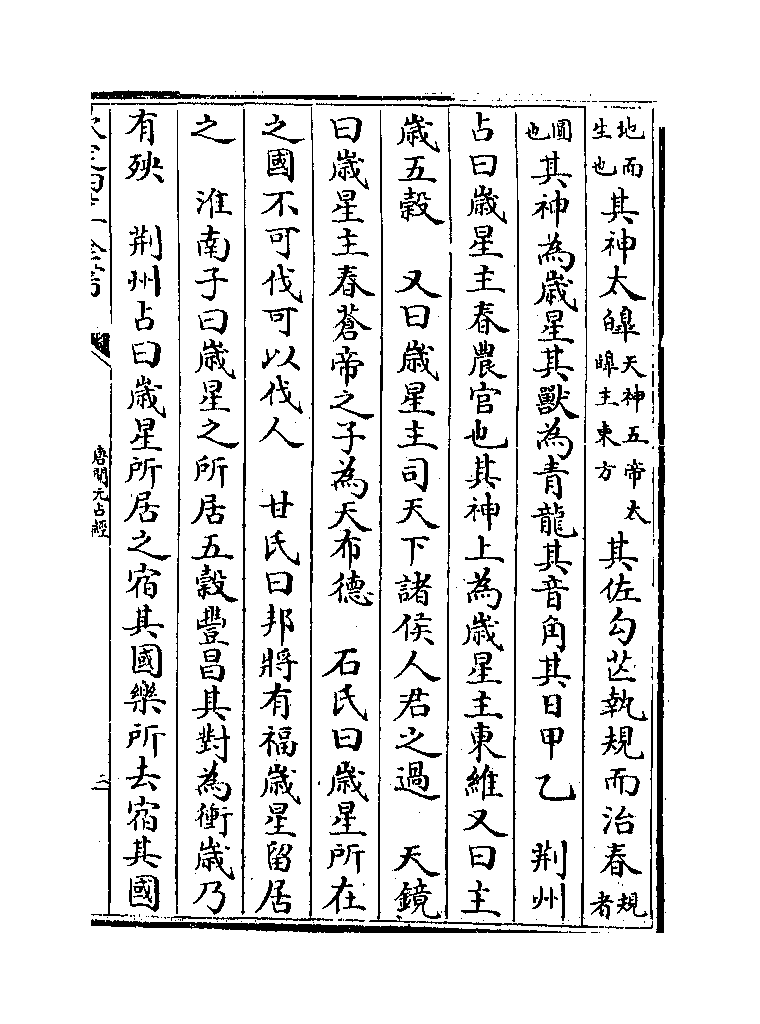 地而生也其神太皥天神五帝太皥主東方其佐勾芒執規而治春規者
圓也其神為嵗星其獸為青龍其音角其日甲乙　荆州
占曰嵗星主春農官也其神上為嵗星主東維又曰主
嵗五穀　又曰嵗星主司天下諸侯人君之過　天鏡
曰嵗星主春蒼帝之子為天布德　石氏曰嵗星所在
之國不可伐可以伐人　甘氏曰邦將有福嵗星留居
之　淮南子曰嵗星之所居五穀豐昌其對為衝嵗乃
有殃　荆州占曰嵗星所居之宿其國樂所去宿其國
唐開元占經
三